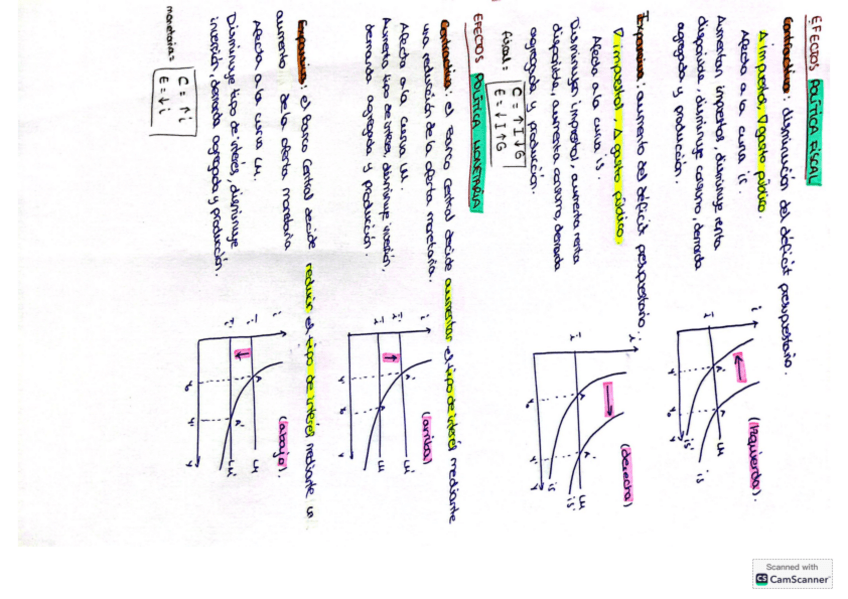 EFECTOS POLÍTICA FISCAL
Contractiva: disminución del déficit presupuestario.
Δ impuestos, ∇ gasto público.
Afecta a la curva is.
Aumentan impuestos, disminuye renta
disponible, disminuye consumo, demanda
agregada y producción.
(Izquierda).
i
ī
A'
A
LM
is'
is
Y'
Y
Expansiva: aumento del déficit presupuestario.:
∇ impuestos, Δ gasto público.
Afecta a la curva is.
Disminuyen impuestos, aumenta renta
disponible, aumenta consumo, demanda
agregada y producción.
(derecha)
i
ī
A
A'
LM
is'
is
Y'
Y
fiscal:
C = ↑I ↓G
E = ↓I ↑G
EFECTOS POLÍTICA MONETARIA
Contractiva: el Banco Central decide aumentar el tipo de interés mediante
una reducción de la oferta monetaria.
Afecta a la curva LM.
Aumenta tipo de interés, disminuye inversión,
demanda agregada y producción.
(arriba)
i
LM'
LM
A
Y
Expansiva: el Banco Central decide reducir el tipo de interés mediante un
aumento de la oferta monetaria.
Afecta a la curva LM.
Disminuye tipo de interés, disminuye
inversión, demanda agregada y producción.
(abajo).
i
A
A'
LM
LM'
Y
monetaria:
C = ↑i
E = ↓i
Scanned with
CS CamScanner